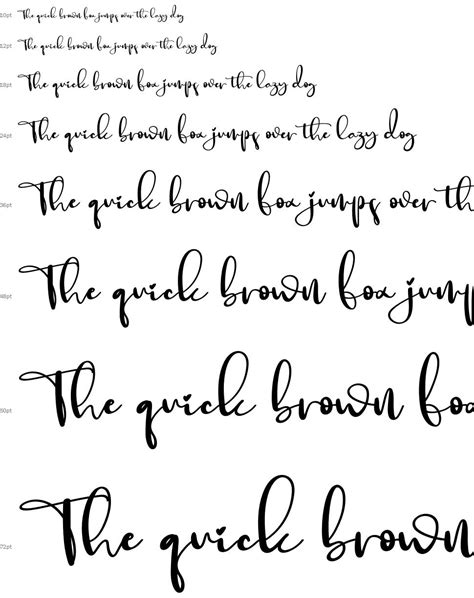 10pt The quick brown fox jumps over the lazy dog
12pt The quick brown fox jumps over the lazy dog
18pt The quick brown fox jumps over the lazy dog
24pt The quick brown fox jumps over the lazy dog
36pt The quick brown fox jumps over th
48pt The quick brown fox jump
60pt The quick brown fox
72pt The quick brown